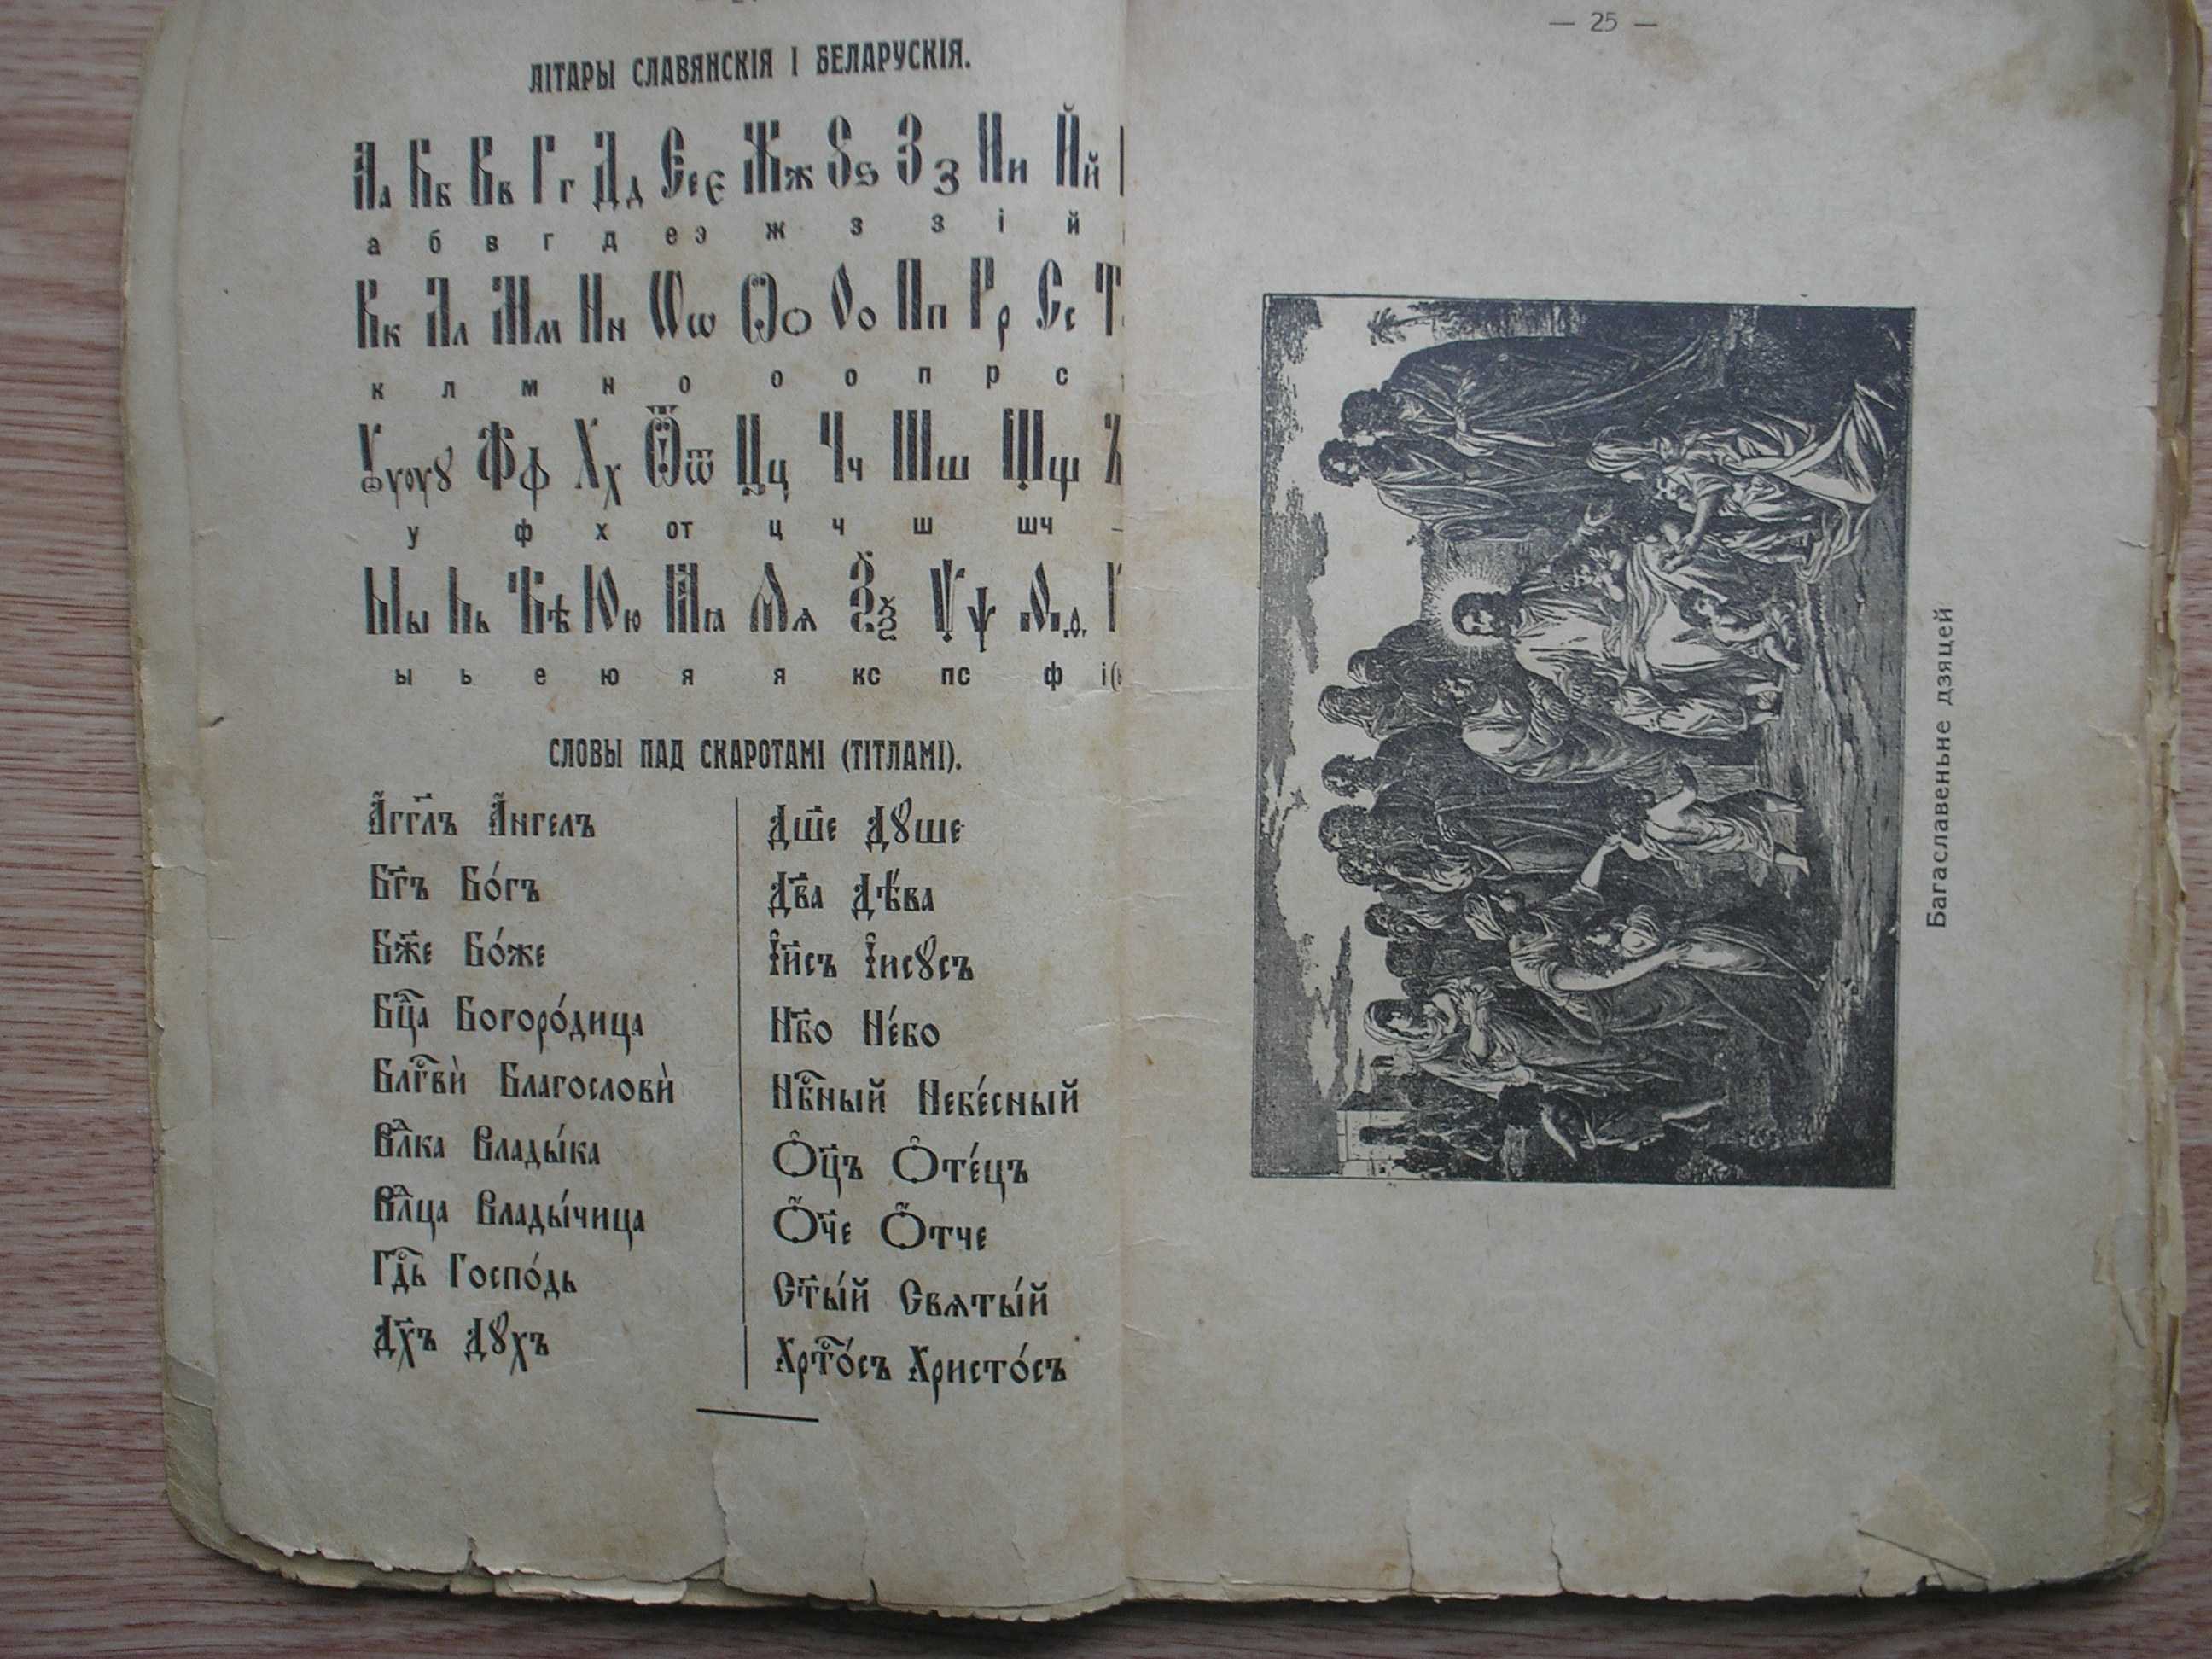 ЛІТАРЫ СЛАВЯНСКІЯ І БЕЛАРУСКІЯ.
Аа Бб Вв Гг Дд Єеє Жж Ѕѕ Зз Ии Йй
а б в г д е э ж з з і й
Кк Лл Мм Нн Ѡѡ Ѻѻ Оо Пп Рр Сс Т
к л м н о о о п р с
Ѹуѹꙋ Фф Хх Ѿѿ Цц Чч Шш Щщ
у ф х от ц ч ш шч
Ыы Ьь Ѣѣ Юю Ꙗꙗ Ѧѧ Ѯѯ Ѱѱ Ѳѳ
ы ь е ю я я кс пс ф і (
СЛОВЫ ПАД СКАРОТАМІ (ТІТЛАМІ).
А҆́гг҃лъ А҆́нгелъ
Бг҃ъ Бо́гъ
Бж҃е Бо́же
Бцⷣа Богоро́дица
Блгⷭ҇вѝ Благословѝ
Влⷣка Влады́ка
Влⷣца Влады́чица
Гдⷭ҇ь Госпо́дь
Дх҃ъ Дꙋхъ
Дш҃е Дꙋше
Дв҃а Дѣ́ва
І҆и҃съ І҆исꙋ́съ
Нб҃о Не́бо
Нбⷭ҇ный Небе́сный
Ѻ҆ц҃ъ Ѻ҆те́цъ
Ѻ҆́ч҃е Ѻ҆́тче
Ст҃ы́й Свѧты́й
Хрⷭ҇то́съ Христо́съ
— 25 —
Багаславеньне дзяцей